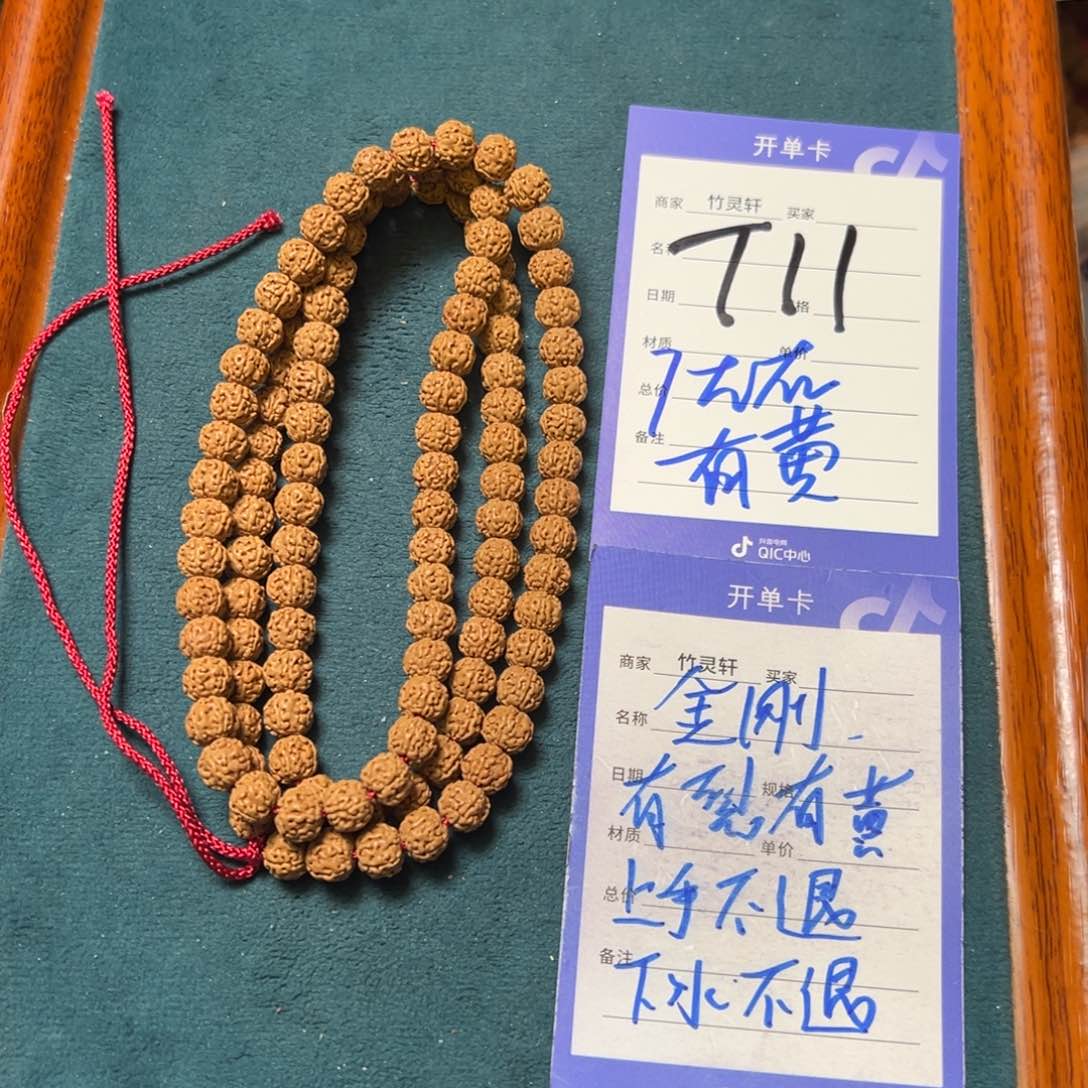 开单卡
商家 竹灵轩 买家
名称
T11
日期 规格
材质 单价
总价
备注
有黄
抖音电商
QIC中心
开单卡
商家 竹灵轩 买家
名称 金刚
日期 规格
有裂有黄
材质 单价
总价
上手不退
备注
下水不退